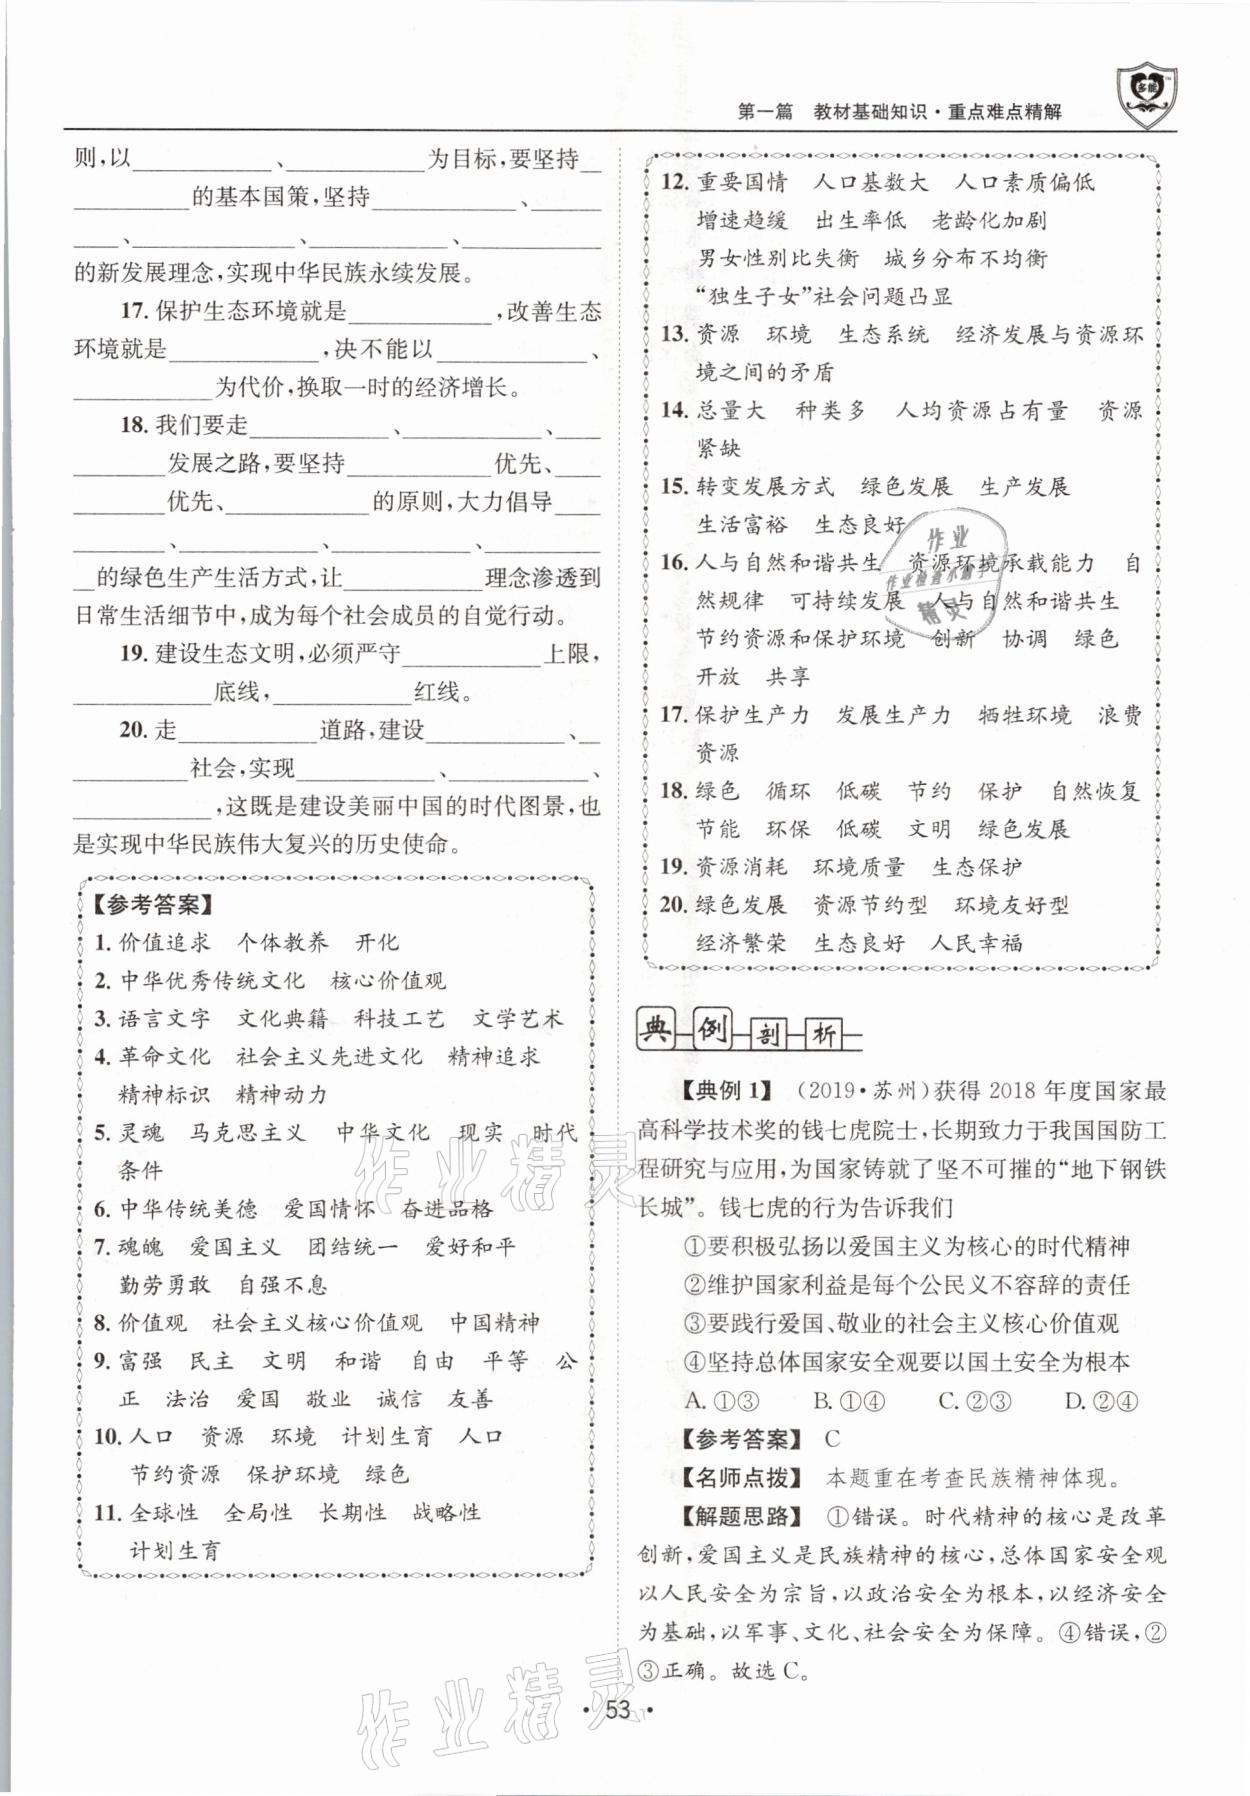 第一篇 教材基础知识·重点难点精解
多能
则,以____________、____________为目标,要坚持__
__________的基本国策,坚持____________、______
____、______________、____________、____________
的新发展理念,实现中华民族永续发展。
17.保护生态环境就是____________,改善生态
环境就是____________,决不能以____________、
____________为代价,换取一时的经济增长。
18.我们要走____________、________、________、
________发展之路,要坚持____________优先、____
________优先、____________的原则,大力倡导____
________、________、________、________、________
__的绿色生产生活方式,让____________理念渗透到
日常生活细节中,成为每个社会成员的自觉行动。
19.建设生态文明,必须严守____________上限,
____________底线,____________红线。
20.走____________道路,建设____________、__
__________社会,实现____________、____________、
____________,这既是建设美丽中国的时代图景,也
是实现中华民族伟大复兴的历史使命。
【参考答案】
1.价值追求 个体教养 开化
2.中华优秀传统文化 核心价值观
3.语言文字 文化典籍 科技工艺 文学艺术
4.革命文化 社会主义先进文化 精神追求
精神标识 精神动力
5.灵魂 马克思主义 中华文化 现实 时代
条件
6.中华传统美德 爱国情怀 奋进品格
7.魂魄 爱国主义 团结统一 爱好和平
勤劳勇敢 自强不息
8.价值观 社会主义核心价值观 中国精神
9.富强 民主 文明 和谐 自由 平等 公
正 法治 爱国 敬业 诚信 友善
10.人口 资源 环境 计划生育 人口
节约资源 保护环境 绿色
11.全球性 全局性 长期性 战略性
计划生育
12.重要国情 人口基数大 人口素质偏低
增速趋缓 出生率低 老龄化加剧
男女性别比失衡 城乡分布不均衡
“独生子女”社会问题凸显
13.资源 环境 生态系统 经济发展与资源环
境之间的矛盾
14.总量大 种类多 人均资源占有量 资源
紧缺
15.转变发展方式 绿色发展 生产发展
生活富裕 生态良好
16.人与自然和谐共生 资源环境承载能力 自
然规律 可持续发展 人与自然和谐共生
节约资源和保护环境 创新 协调 绿色
开放 共享
17.保护生产力 发展生产力 牺牲环境 浪费
资源
18.绿色 循环 低碳 节约 保护 自然恢复
节能 环保 低碳 文明 绿色发展
19.资源消耗 环境质量 生态保护
20.绿色发展 资源节约型 环境友好型
经济繁荣 生态良好 人民幸福
典例剖析
【典例1】 (2019·苏州)获得2018年度国家最
高科学技术奖的钱七虎院士,长期致力于我国国防工
程研究与应用,为国家铸就了坚不可摧的“地下钢铁
长城”。钱七虎的行为告诉我们
①要积极弘扬以爱国主义为核心的时代精神
②维护国家利益是每个公民义不容辞的责任
③要践行爱国、敬业的社会主义核心价值观
④坚持总体国家安全观要以国土安全为根本
A.①③ B.①④ C.②③ D.②④
【参考答案】 C
【名师点拨】 本题重在考查民族精神体现。
【解题思路】 ①错误。时代精神的核心是改革
创新,爱国主义是民族精神的核心,总体国家安全观
以人民安全为宗旨,以政治安全为根本,以经济安全
为基础,以军事、文化、社会安全为保障。④错误,②
③正确。故选C。
作业
作业检查小助手
精灵
作业精灵
作业精灵
·53·